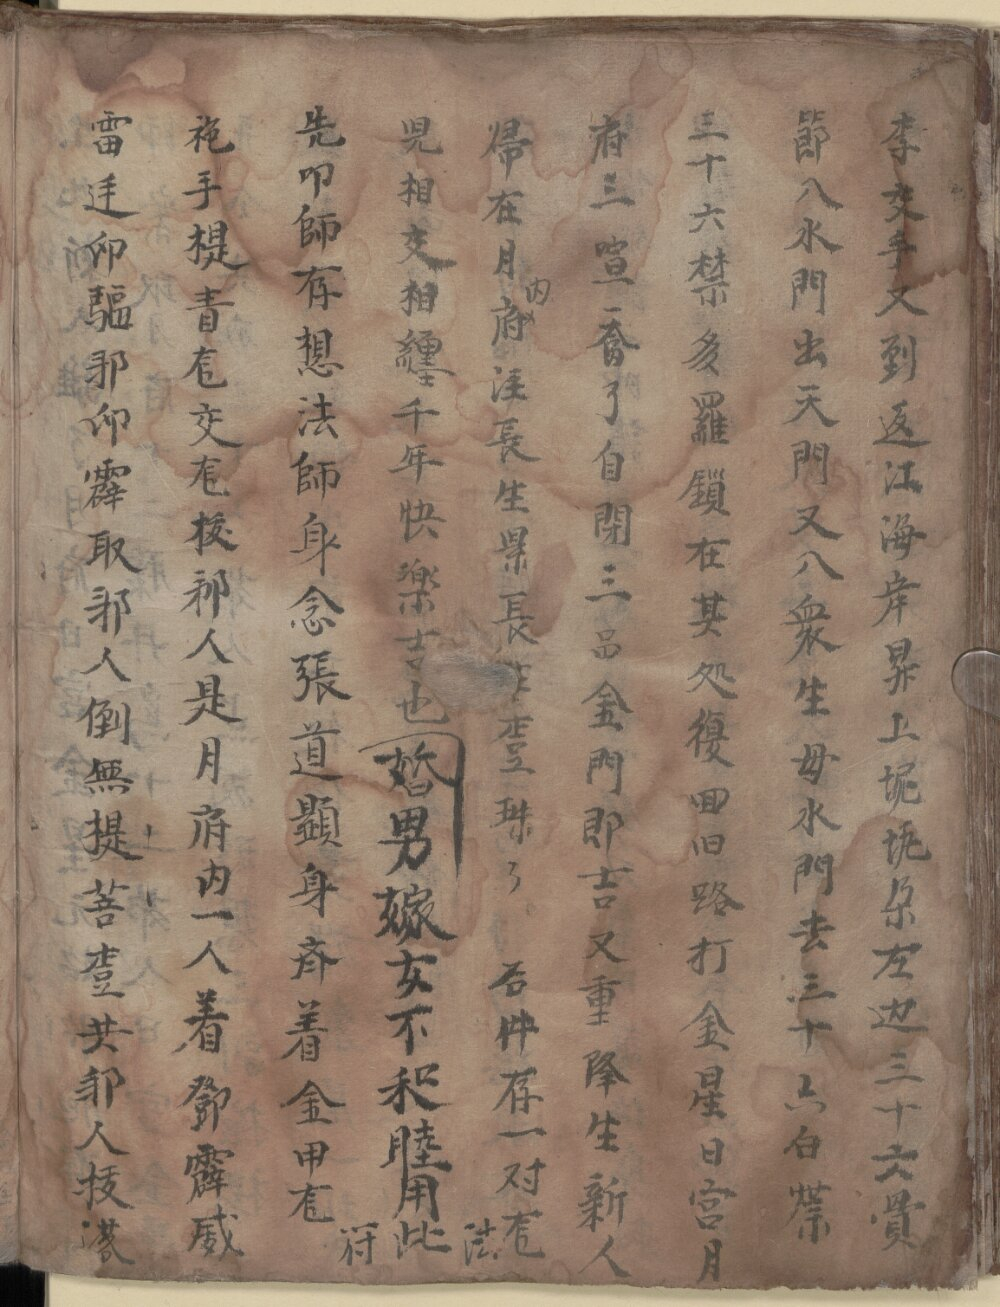 李交手又到返江海岸昇上坭坭朵左边三十六骨
節八水門出天門又八衆生母水門去三十六白
三十六禁多羅鎖在其处復回旧路打金星日宮月
府三喧一奮了自閉三品金門即吉又重降生新人
帰在月府内注長生果長生登殊了 右件存一对
児相交相纏千年快楽吉也 婚男嫁女不和睦用此法符
先叩師存想法師身念張道顯身斉着金甲
袍手提青交邪人是月府内一人着鄧霹威
雷廷仰驅邪仰霹取邪人倒無提菩薹共邪人